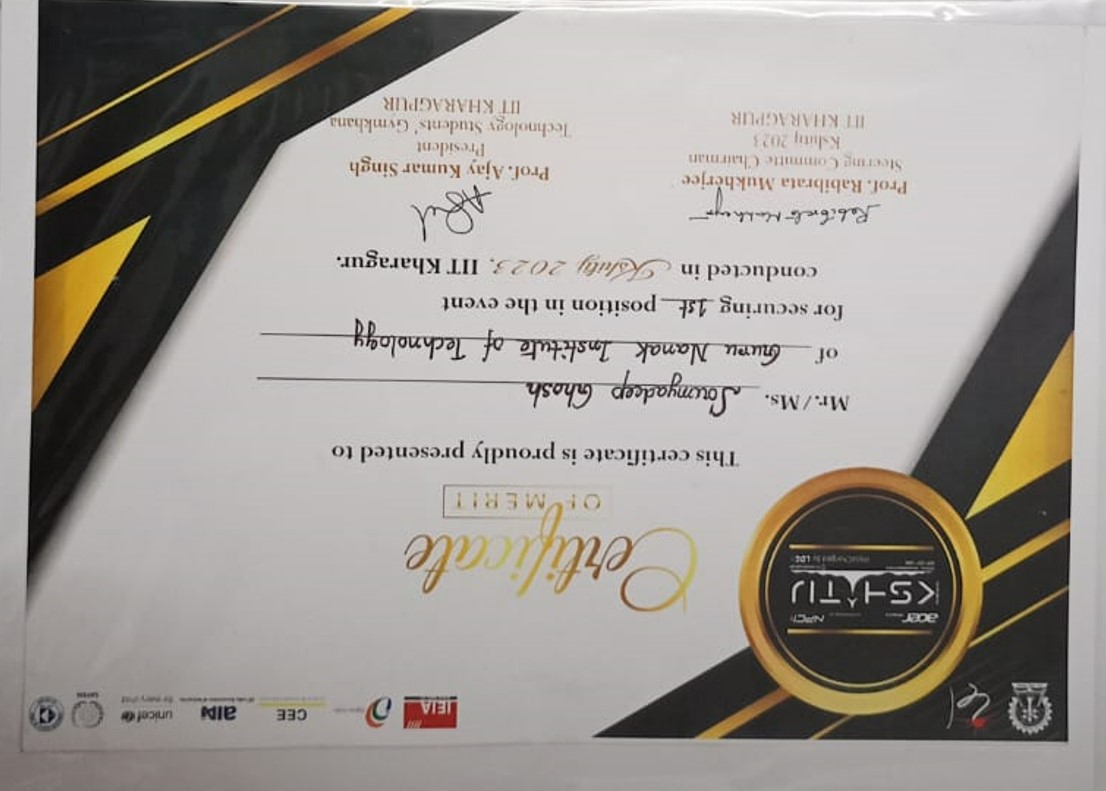 IEIA
CEE
AIAI
unicef
for every child
acer
NPCI
KSHITIJ
Certificate
OF MERIT
This certificate is proudly presented to
Mr./Ms. Soumyadeep Ghosh
of Guru Nanak Institute of Technology
for securing 1st position in the event
conducted in Kshitij 2023, IIT Kharagur.
Rabibrata Mukherjee
Prof. Rabibrata Mukherjee
Steering Committe Chairman
Kshitij 2023
IIT KHARAGPUR
Prof. Ajay Kumar Singh
President
Technology Students' Gymkhana
IIT KHARAGPUR